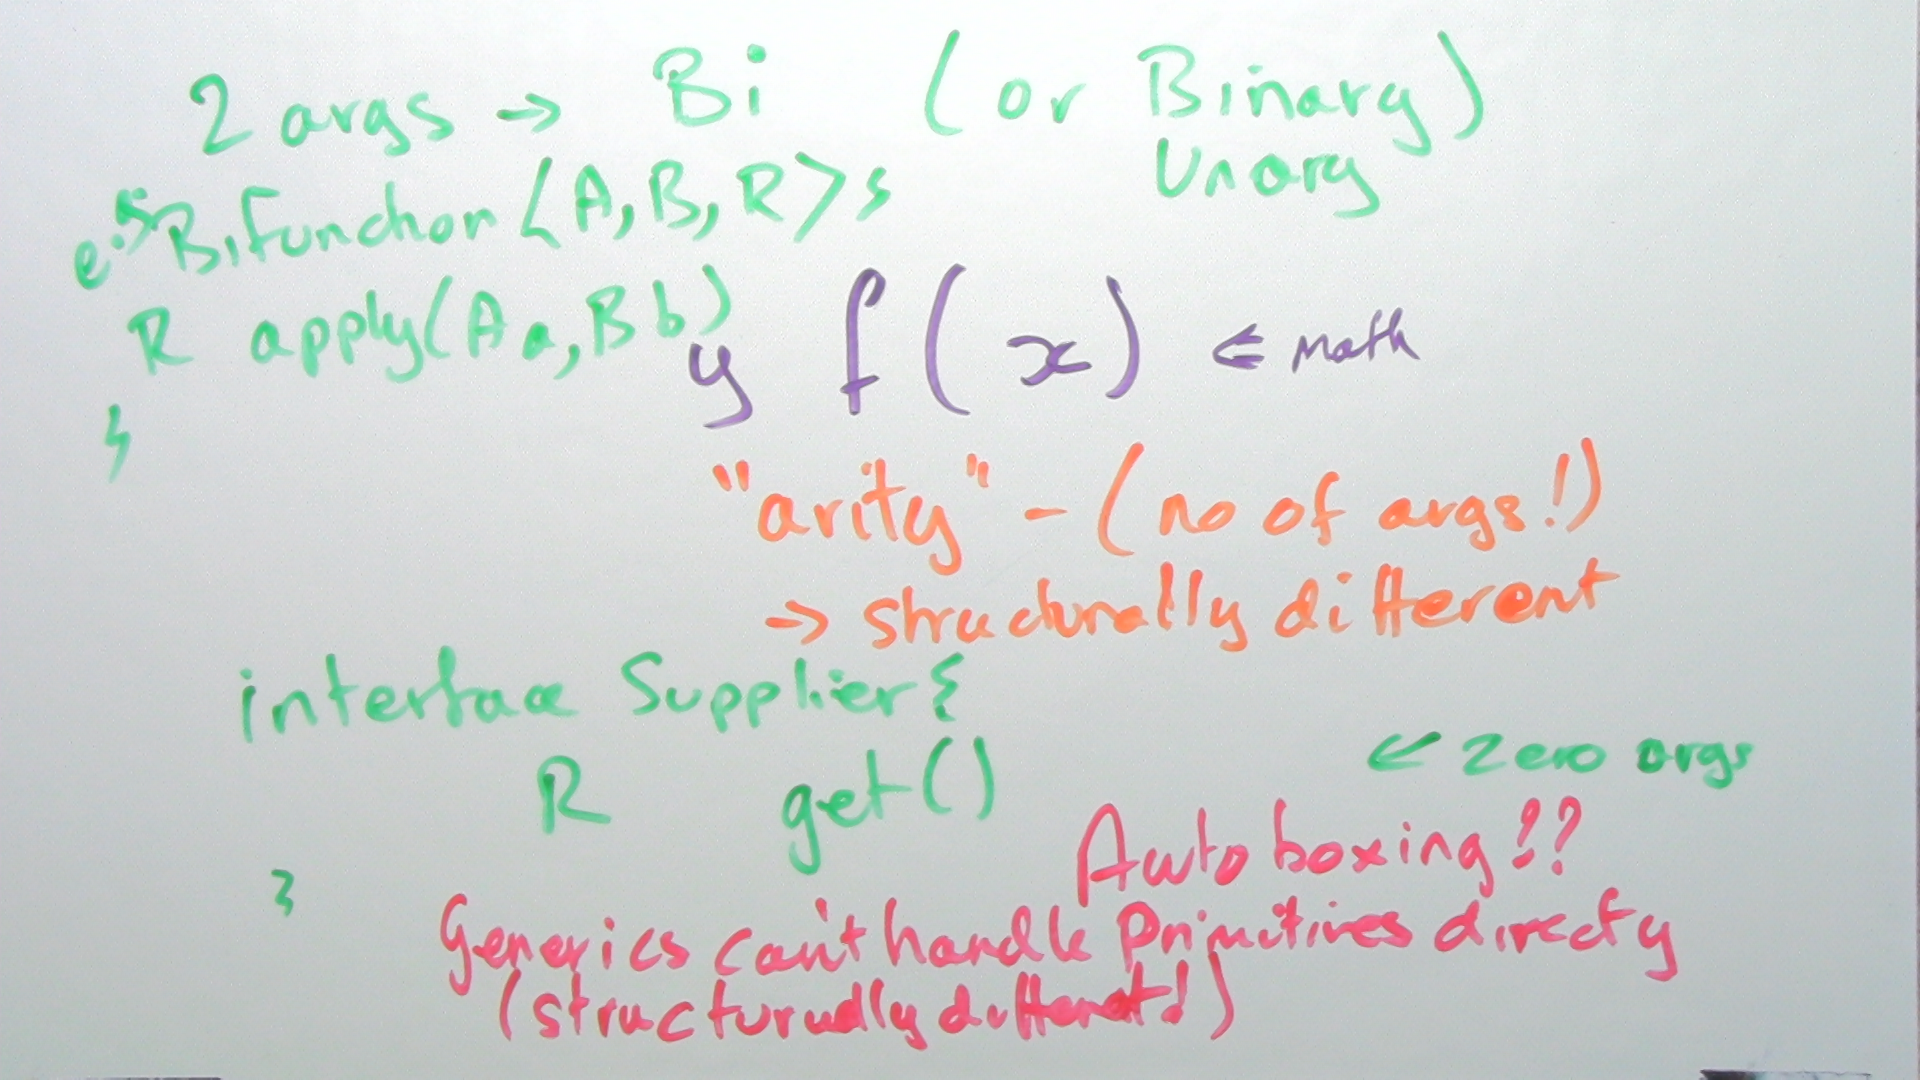 2 args → Bi (or Binary)
Unary
e.g. Bifunction <A, B, R> {
R apply(A a, B b)
}
y f(x) ⇐ math
"arity" - (no of args!)
→ structurally different
interface Supplier {
R get()
← zero args
}
Autoboxing!??
Generics can't handle primitives directy
(structurually different!)